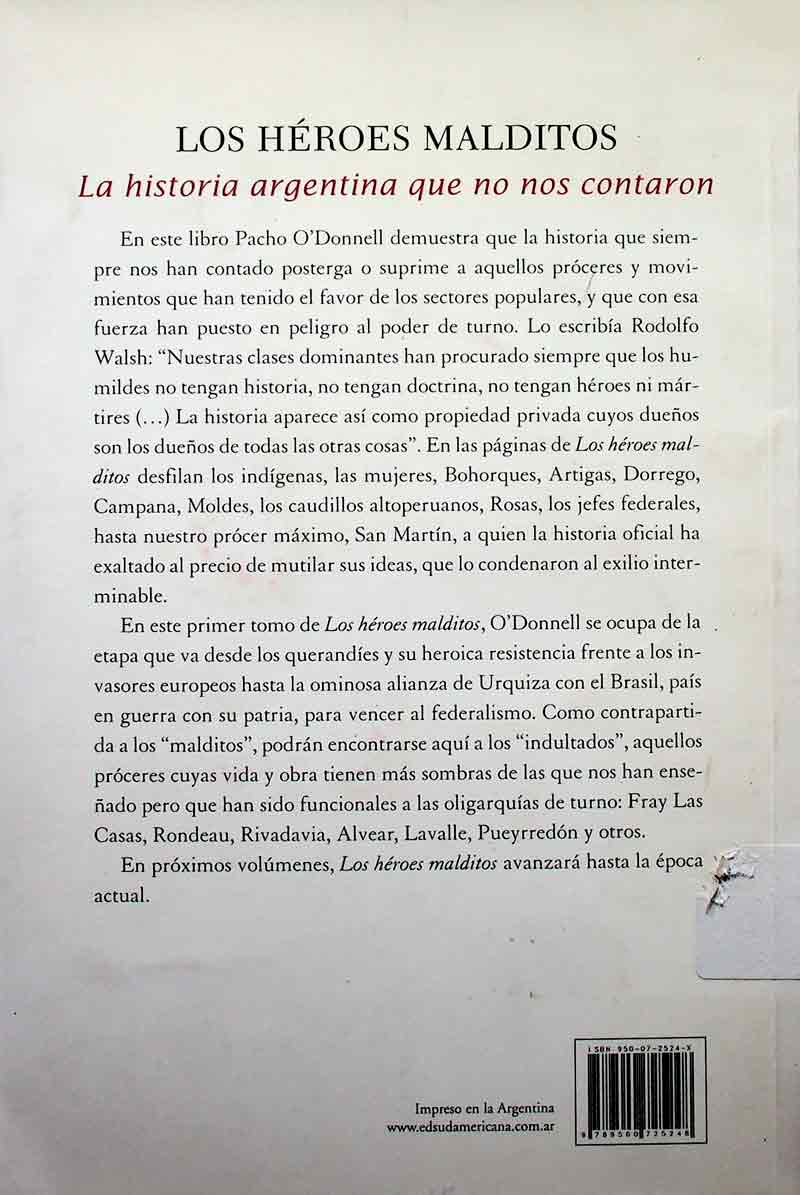 LOS HÉROES MALDITOS
La historia argentina que no nos contaron
En este libro Pacho O'Donnell demuestra que la historia que siem-
pre nos han contado posterga o suprime a aquellos próceres y movi-
mientos que han tenido el favor de los sectores populares, y que con esa
fuerza han puesto en peligro al poder de turno. Lo escribía Rodolfo
Walsh: “Nuestras clases dominantes han procurado siempre que los hu-
mildes no tengan historia, no tengan doctrina, no tengan héroes ni már-
tires (...) La historia aparece así como propiedad privada cuyos dueños
son los dueños de todas las otras cosas”. En las páginas de Los héroes mal-
ditos desfilan los indígenas, las mujeres, Bohorques, Artigas, Dorrego,
Campana, Moldes, los caudillos altoperuanos, Rosas, los jefes federales,
hasta nuestro prócer máximo, San Martín, a quien la historia oficial ha
exaltado al precio de mutilar sus ideas, que lo condenaron al exilio inter-
minable.
En este primer tomo de Los héroes malditos, O'Donnell se ocupa de la
etapa que va desde los querandíes y su heroica resistencia frente a los in-
vasores europeos hasta la ominosa alianza de Urquiza con el Brasil, país
en guerra con su patria, para vencer al federalismo. Como contraparti-
da a los “malditos”, podrán encontrarse aquí a los “indultados”, aquellos
próceres cuyas vida y obra tienen más sombras de las que nos han ense-
ñado pero que han sido funcionales a las oligarquías de turno: Fray Las
Casas, Rondeau, Rivadavia, Alvear, Lavalle, Pueyrredón y otros.
En próximos volúmenes, Los héroes malditos avanzará hasta la época
actual.
ISBN 950-07-2524-X
Impreso en la Argentina
www.edsudamericana.com.ar
9 789500 725248